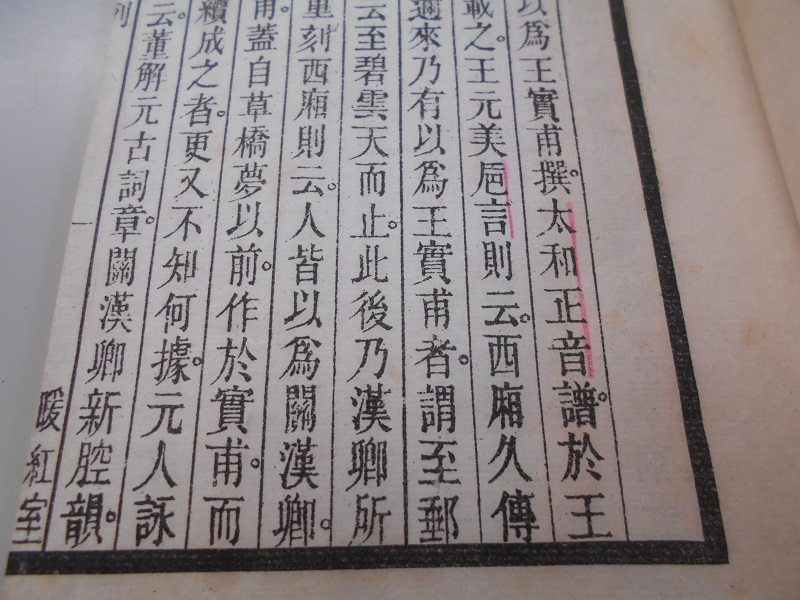 以爲王實甫撰。太和正音譜。於王
載之。王元美巵言則云。西廂久傳
邇來乃有以爲王實甫者。謂至郵
云至碧雲天而止。此後乃漢卿所
重刻西廂則云。人皆以爲關漢卿。
甫。蓋自草橋夢以前。作於實甫。而
續成之者。更又不知何據。元人詠
云。董解元古詞章。關漢卿新腔韻。
列
暖紅室